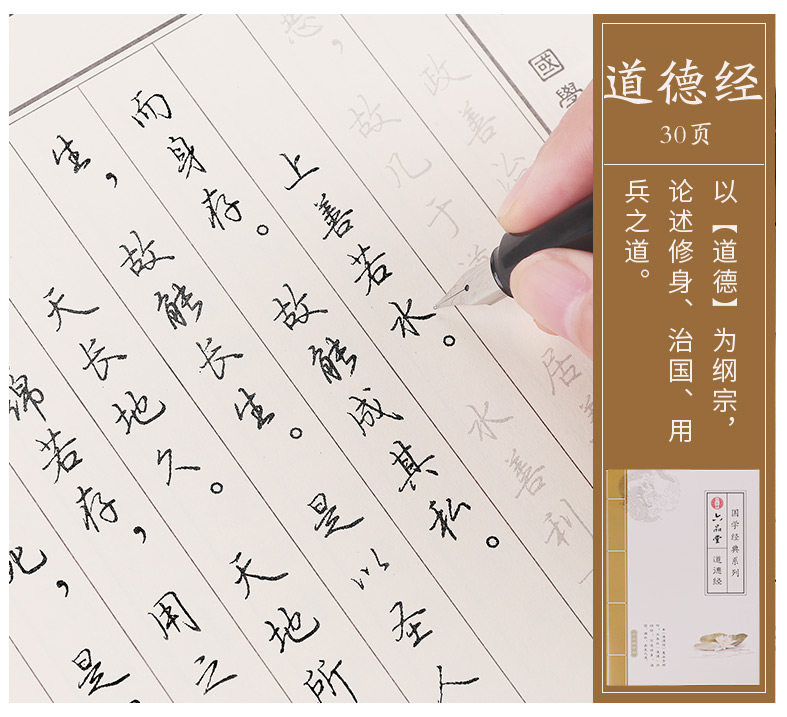 國學
政善治
恶，故几于道 居善
上善若水。水善利
而身存。故能成其私。
生，故能长生。是以圣人
天长地久。天地所
绵若存，用之
死，是
道德经
30页
以【道德】为纲宗，
论述修身、治国、用
兵之道。
国学经典系列
六品堂 道德经